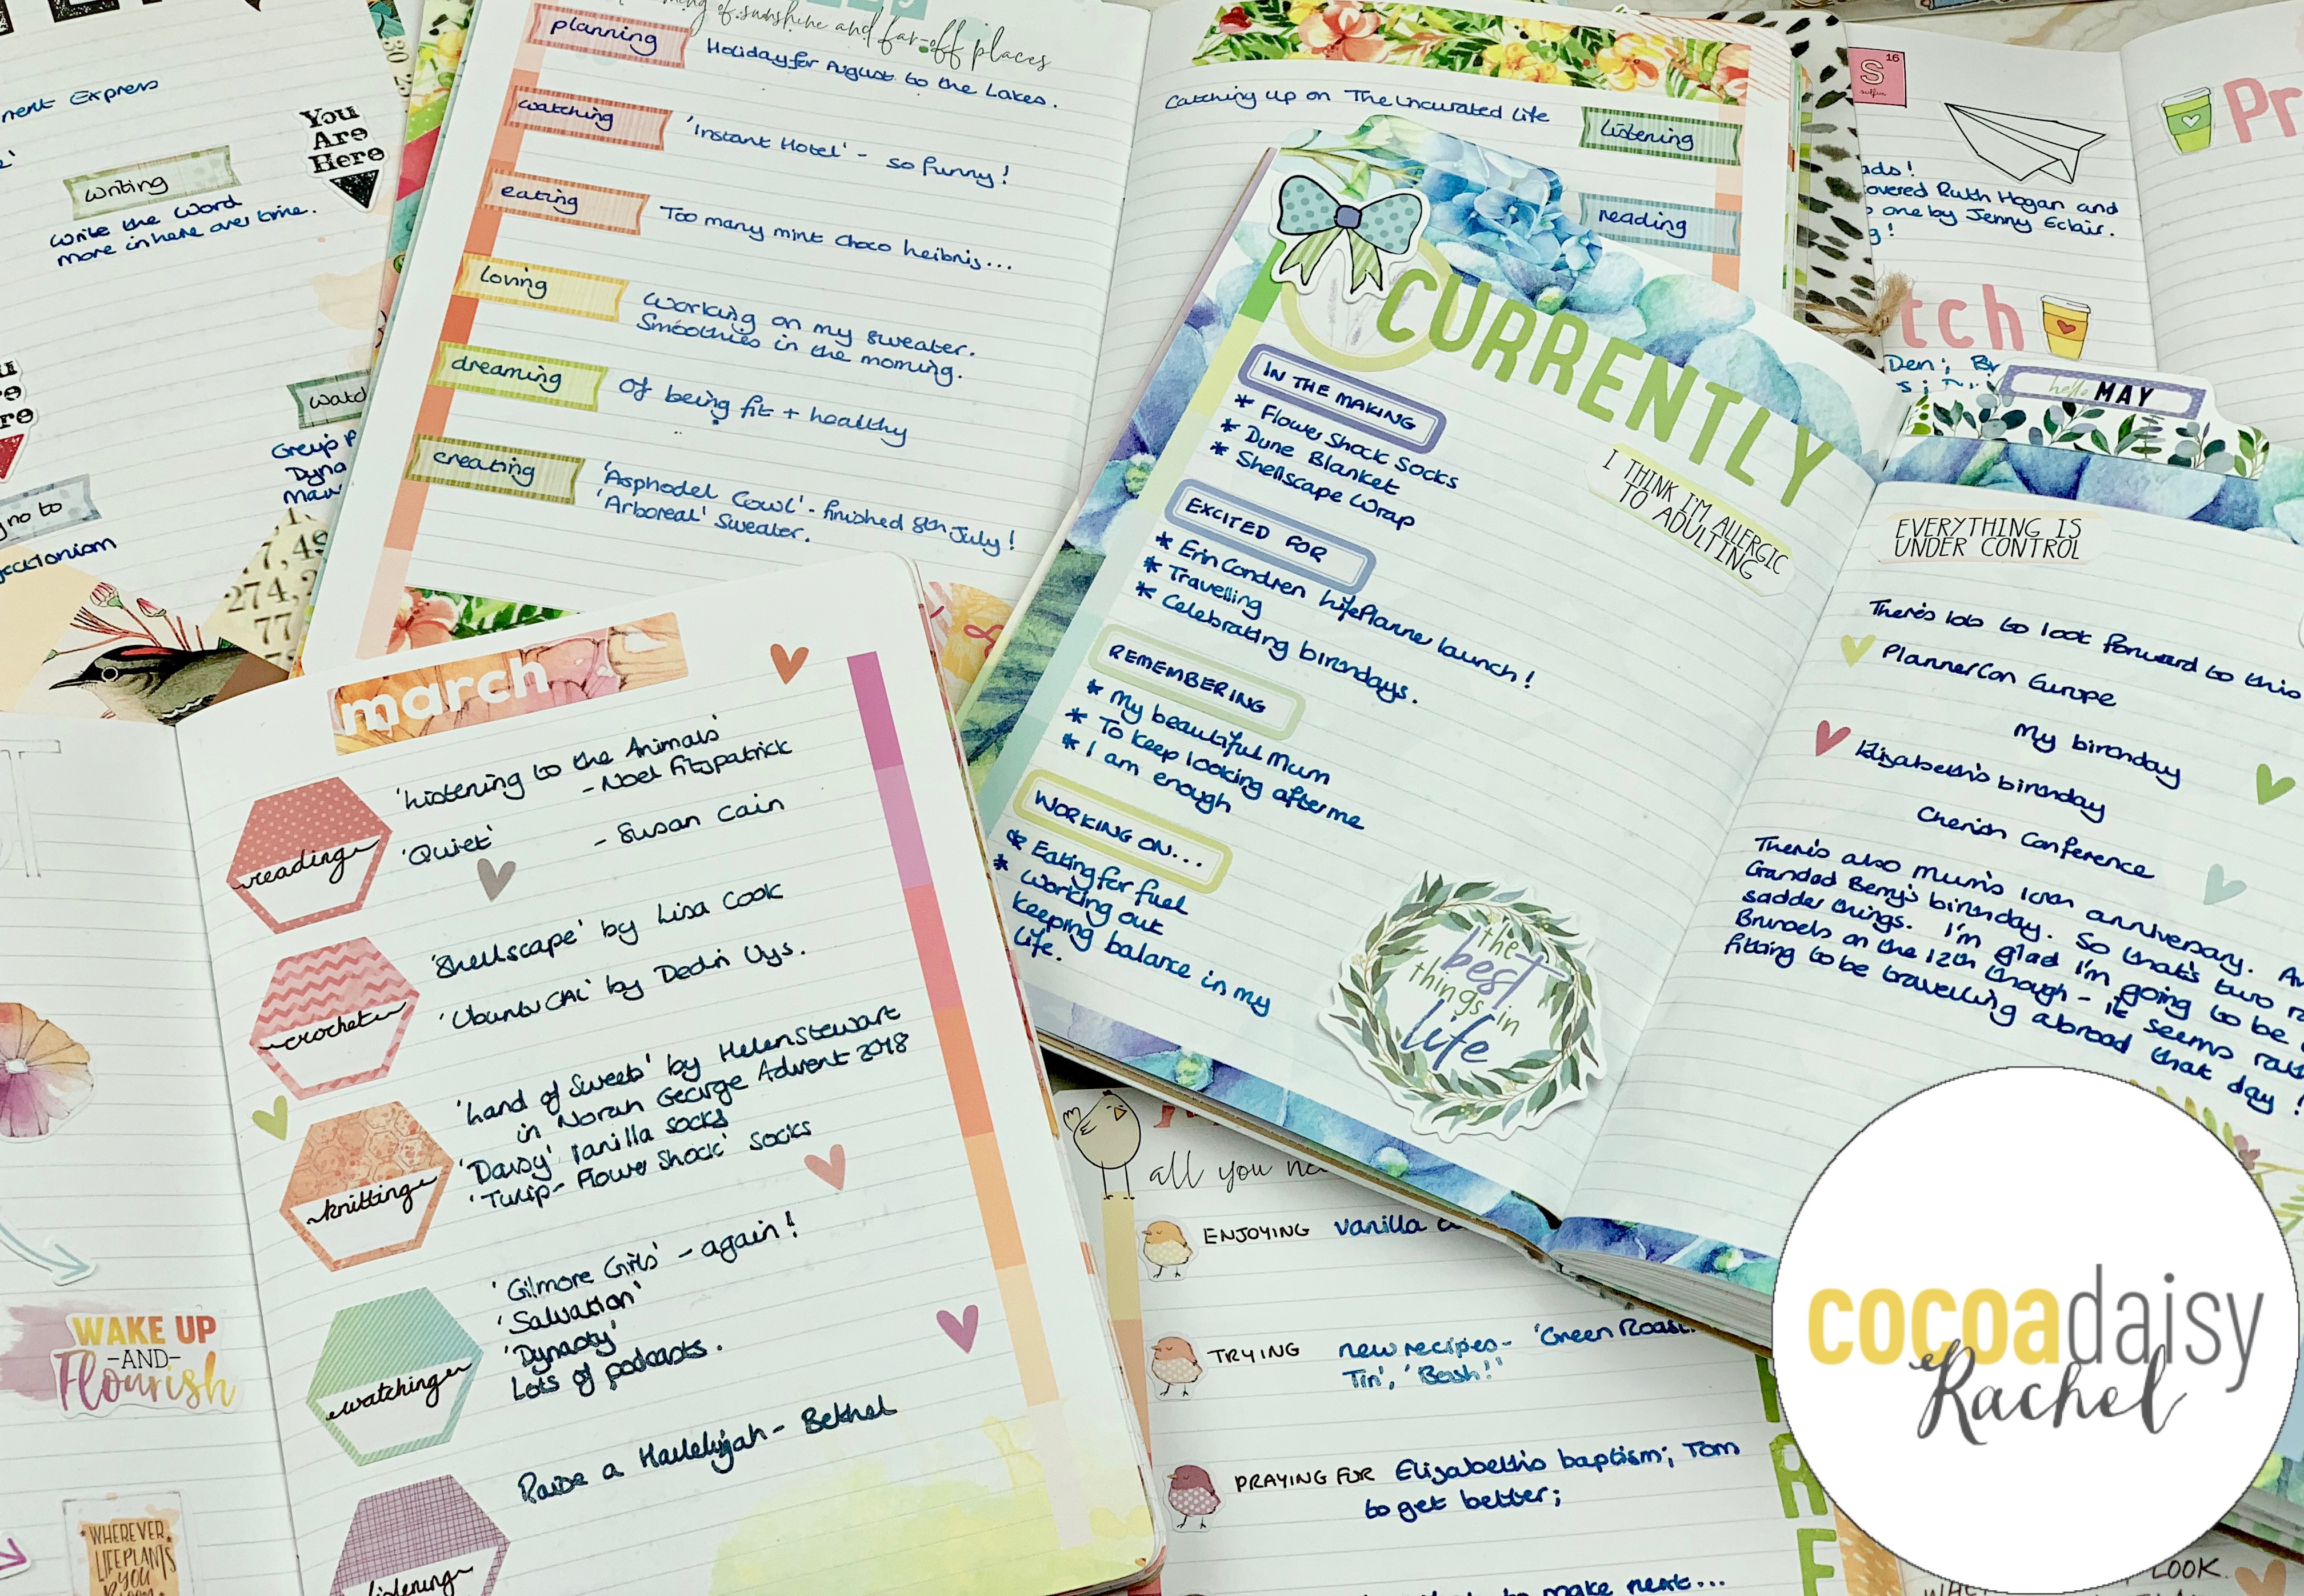 nent Express
You
Are
Here
writing
write the word
more in here over time.
no to
watc
Greys
Dyna
30 25
7, 49
274, 2
77
of sunshine and far-off places
planning
Holiday for August to the Lakes.
watching
'Instant Hotel' - so funny!
eating
Too many mint choco leibnis...
loving
Working on my sweater.
Smoothies in the morning.
dreaming
Of being fit + healthy
creating
'Asphodel Cowl' - finished 8th July!
'Arboreal' Sweater.
Catching up on The Uncurated Life
listening
reading
16
S
Pr
ads!
overed Ruth Hogan and
one by Jenny Eclair.
g!
tch
Den; Br
hello MAY
CURRENTLY
IN THE MAKING
* Flower Shock Socks
* Dune Blanket
* Shellscape Wrap
I THINK I'M ALLERGIC
TO ADULTING
EXCITED FOR
* Erin Condren LifePlanner launch!
* Travelling
* Celebrating birthdays.
REMEMBERING
* My beautiful Mum
* To keep looking after me
* I am enough
WORKING ON...
* Eating for fuel
* Working out
Keeping balance in my
life.
the
best
things in
life
EVERYTHING IS
UNDER CONTROL
There's lots to look forward to this
PlannerCon Europe
My birthday
Elizabeth's birthday
Cherish Conference
There's also mum's 10th anniversary. An
Grandad Berry's birthday. So that's two
sadder things. I'm glad I'm going to be
Brussels on the 12th though - it seems
fitting to be travelling abroad that day!
march
reading
'Listening to the Animals'
- Noel Fitzpatrick
'Quiet' - Susan Cain
crochet
'Shellscape' by Lisa Cook
'Ubuntu CAL' by Dedri Uys.
knitting
'Land of Sweets' by Helen Stewart
in Norah George Advent 2018
'Daisy' vanilla socks
'Tulip - Flower Shock' socks
watching
'Gilmore Girls' - again!
'Salvation'
'Dynasty'
Lots of podcasts.
listening
Raise a Hallelujah - Bethel
WAKE UP
-AND-
Flourish
WHEREVER
LIFE PLANTS
YOU
all you ne
ENJOYING vanilla
TRYING new recipes - 'Green Roas
Tin', 'Bosh!'
PRAYING FOR Elizabeth's baptism; Tom
to get better;
to make next...
RE
LOOK.
cocoadaisy
Rachel